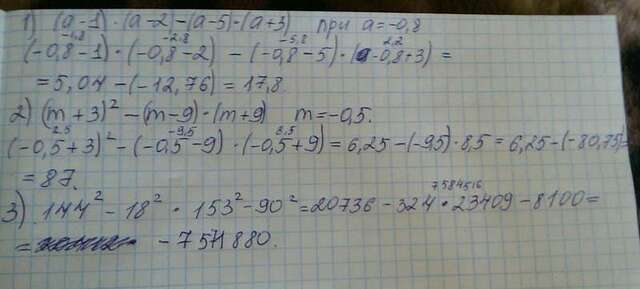 1) (a-1)·(a-2)-(a-5)·(a+3) при a=-0,8
-1,8 -2,8 -5,8 2,2
(-0,8-1)·(-0,8-2)-(-0,8-5)·(-0,8+3)=
=5,04-(-12,76)=17,8.
2) (m+3)²-(m-9)·(m+9) m=-0,5.
2,5 -9,5 8,5
(-0,5+3)²-(-0,5-9)·(-0,5+9)=6,25-(-9,5)·8,5=6,25-(-80,75)=
=87.
7584516
3) 144²-18²·153²-90²=20736-324·23409-8100=
= -7571880.